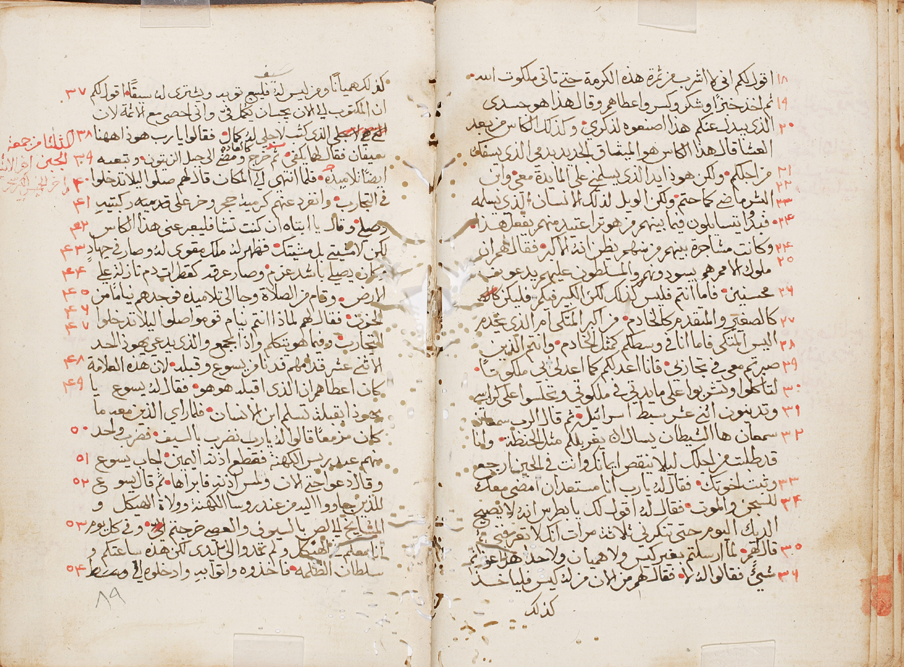 ١٨ اقول لكم اني لا اشرب من ثمرة هذه الكرمة حتى تاتي ملكوت الله
١٩ ثم اخذ خبزا وشكر وكسر واعطاهم وقال هذا هو جسدي
٢٠ الذي يبذل عنكم هذا اصنعوه لذكري وكذلك الكاس من بعد
العشا قال هذا الكاس هو الميثاق الجديد بدمي الذي يسفك
٢١ من اجلكم ولكن هوذا يد الذي يسلمني على المائدة معي وابن
٢٢ ٢٣ البشر ماض كما حتم ولكن الويل لذلك الانسان الذي يسلمه
فبدوا يتسايلون فيما بينهم من هو ترا عتيد منهم يفعل هذا
٢٤ وكانت مشاجرة بينهم من منهم يظن انه الاكبر فقال لهم ان
٢٥ ملوك الامم هم يسودونهم والمسلطون عليهم يدعون
٢٦ محسنين فاما انتم فليس كذلك لكن الكبير فيكم فليكن
٢٧ كالصغير والمتقدم كالخادم من اكبر المتكي ام الذي يخدم
٢٨ اليس المتكي فاما انا في وسطكم كمثل الخادم وانتم الذين
٢٩ صبرتم معي في تجاربي فانا اعد لكم كما اعد لي ابي ملكوتا
٣٠ لتاكلوا وتشربوا على مايدتي في ملكوتي وتجلسوا على كراسي
٣١ وتدينون اثني عشر سبط اسرائيل ثم قال الرب سمعان
٣٢ سمعان ها الشيطان يسال ان يغربلكم مثل الحنطة وانا
قد طلبت من اجلك ليلا ينقص ايمانك وانت في الحين ارجع
٣٣ وثبت اخوتك فقال له يا رب انا مستعد ان امضي معك
٣٤ للسجن والموت فقال له اقول لك يا بطرس انه لا يصيح
الديك اليوم حتى تنكرني ثلاثة مرات انك لا تعرفني ثم
٣٥ قال لهم لما ارسلتكم بغير كيس ولا هميان ولا حذا هل اعوزكم
٣٦ شيء فقالوا له لا فقال لهم من الان من له كيس فلياخذ
كذلك
كذلك هميانا ومن ليس له فليبع ثوبه ويشتري له سيفا
٣٧ اقول لكم ان المكتوب الى الان يجب ان يكمل في واني احصي مع الاثمة لان
٣٨ الذي كتب لاجلي له كمال فقالوا يا رب هوذا ههنا
٣٩ سيفان فقال لهما يكفي ثم خرج ومضى كالعادة الى جبل الزيتون وتبعه
٤٠ ايضا تلاميذه فلما انتهى الى المكان قال لهم صلوا ليلا تدخلوا
٤١ في التجارب وانفرد عنهم كرمية حجر وخر على قدميه ركبتيه
٤٢ وصلى وقال يا ابتاه ان كنت تشا فليعبر عني هذا الكاس
٤٣ لكن لا مشيتي بل مشيتك فظهر له ملاك يقوي له وصار في جهاد
٤٤ وكان يصلي باشد عزم وصار عرقه كقطرات دم نازل على
٤٥ الارض وقام من الصلاة وجا الى تلاميذه فوجدهم نياما من
٤٦ ٤٧ الحزن فقال لهم لماذا انتم نيام قوموا صلوا ليلا تدخلوا
التجارب وفيما هو يتكلم واذا بجمع والذي يدعى يهوذا احد
٤٨ الاثني عشر قدامهم قد دنا من يسوع وقبله لان هذه العلامة
٤٩ كان اعطاهم ان الذي اقبله هو هو فقال له يسوع يا
يهوذا ابقبلة تسلم ابن الانسان فلما راى الذين معه ما
٥٠ كان مزمعا قالوا له يا رب نضرب بالسيف فضرب واحد
٥١ منهم عبد رييس الكهنة فقطع اذنه اليمين فاجاب يسوع
٥٢ وقال دعوا حتى الان ولمس اذنه فابراها ثم قال يسوع
للذين جاوا اليه من عند روسا الكهنة وولاة الهيكل و
٥٣ المشايخ اللص بالسيوف والعصي خرجتم وفي كل يوم
انا معكم في الهيكل ولم تمدوا الي يدي لكن هذه ساعتكم و
٥٤ سلطان الظلمة فاخذوه واتوا به وادخلوه الى وسط
٨٩